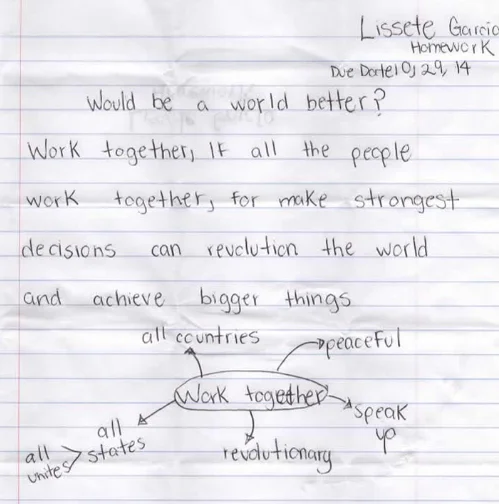 Lissete Garcia
Homework
Due Date 10, 29, 14
Would be a world better?
Work together, If all the people
work together, for make strongest
decisions can revolution the world
and achieve bigger things
all countries
peaceful
Work together
speak
up
all
states
all
unites
revolutionary